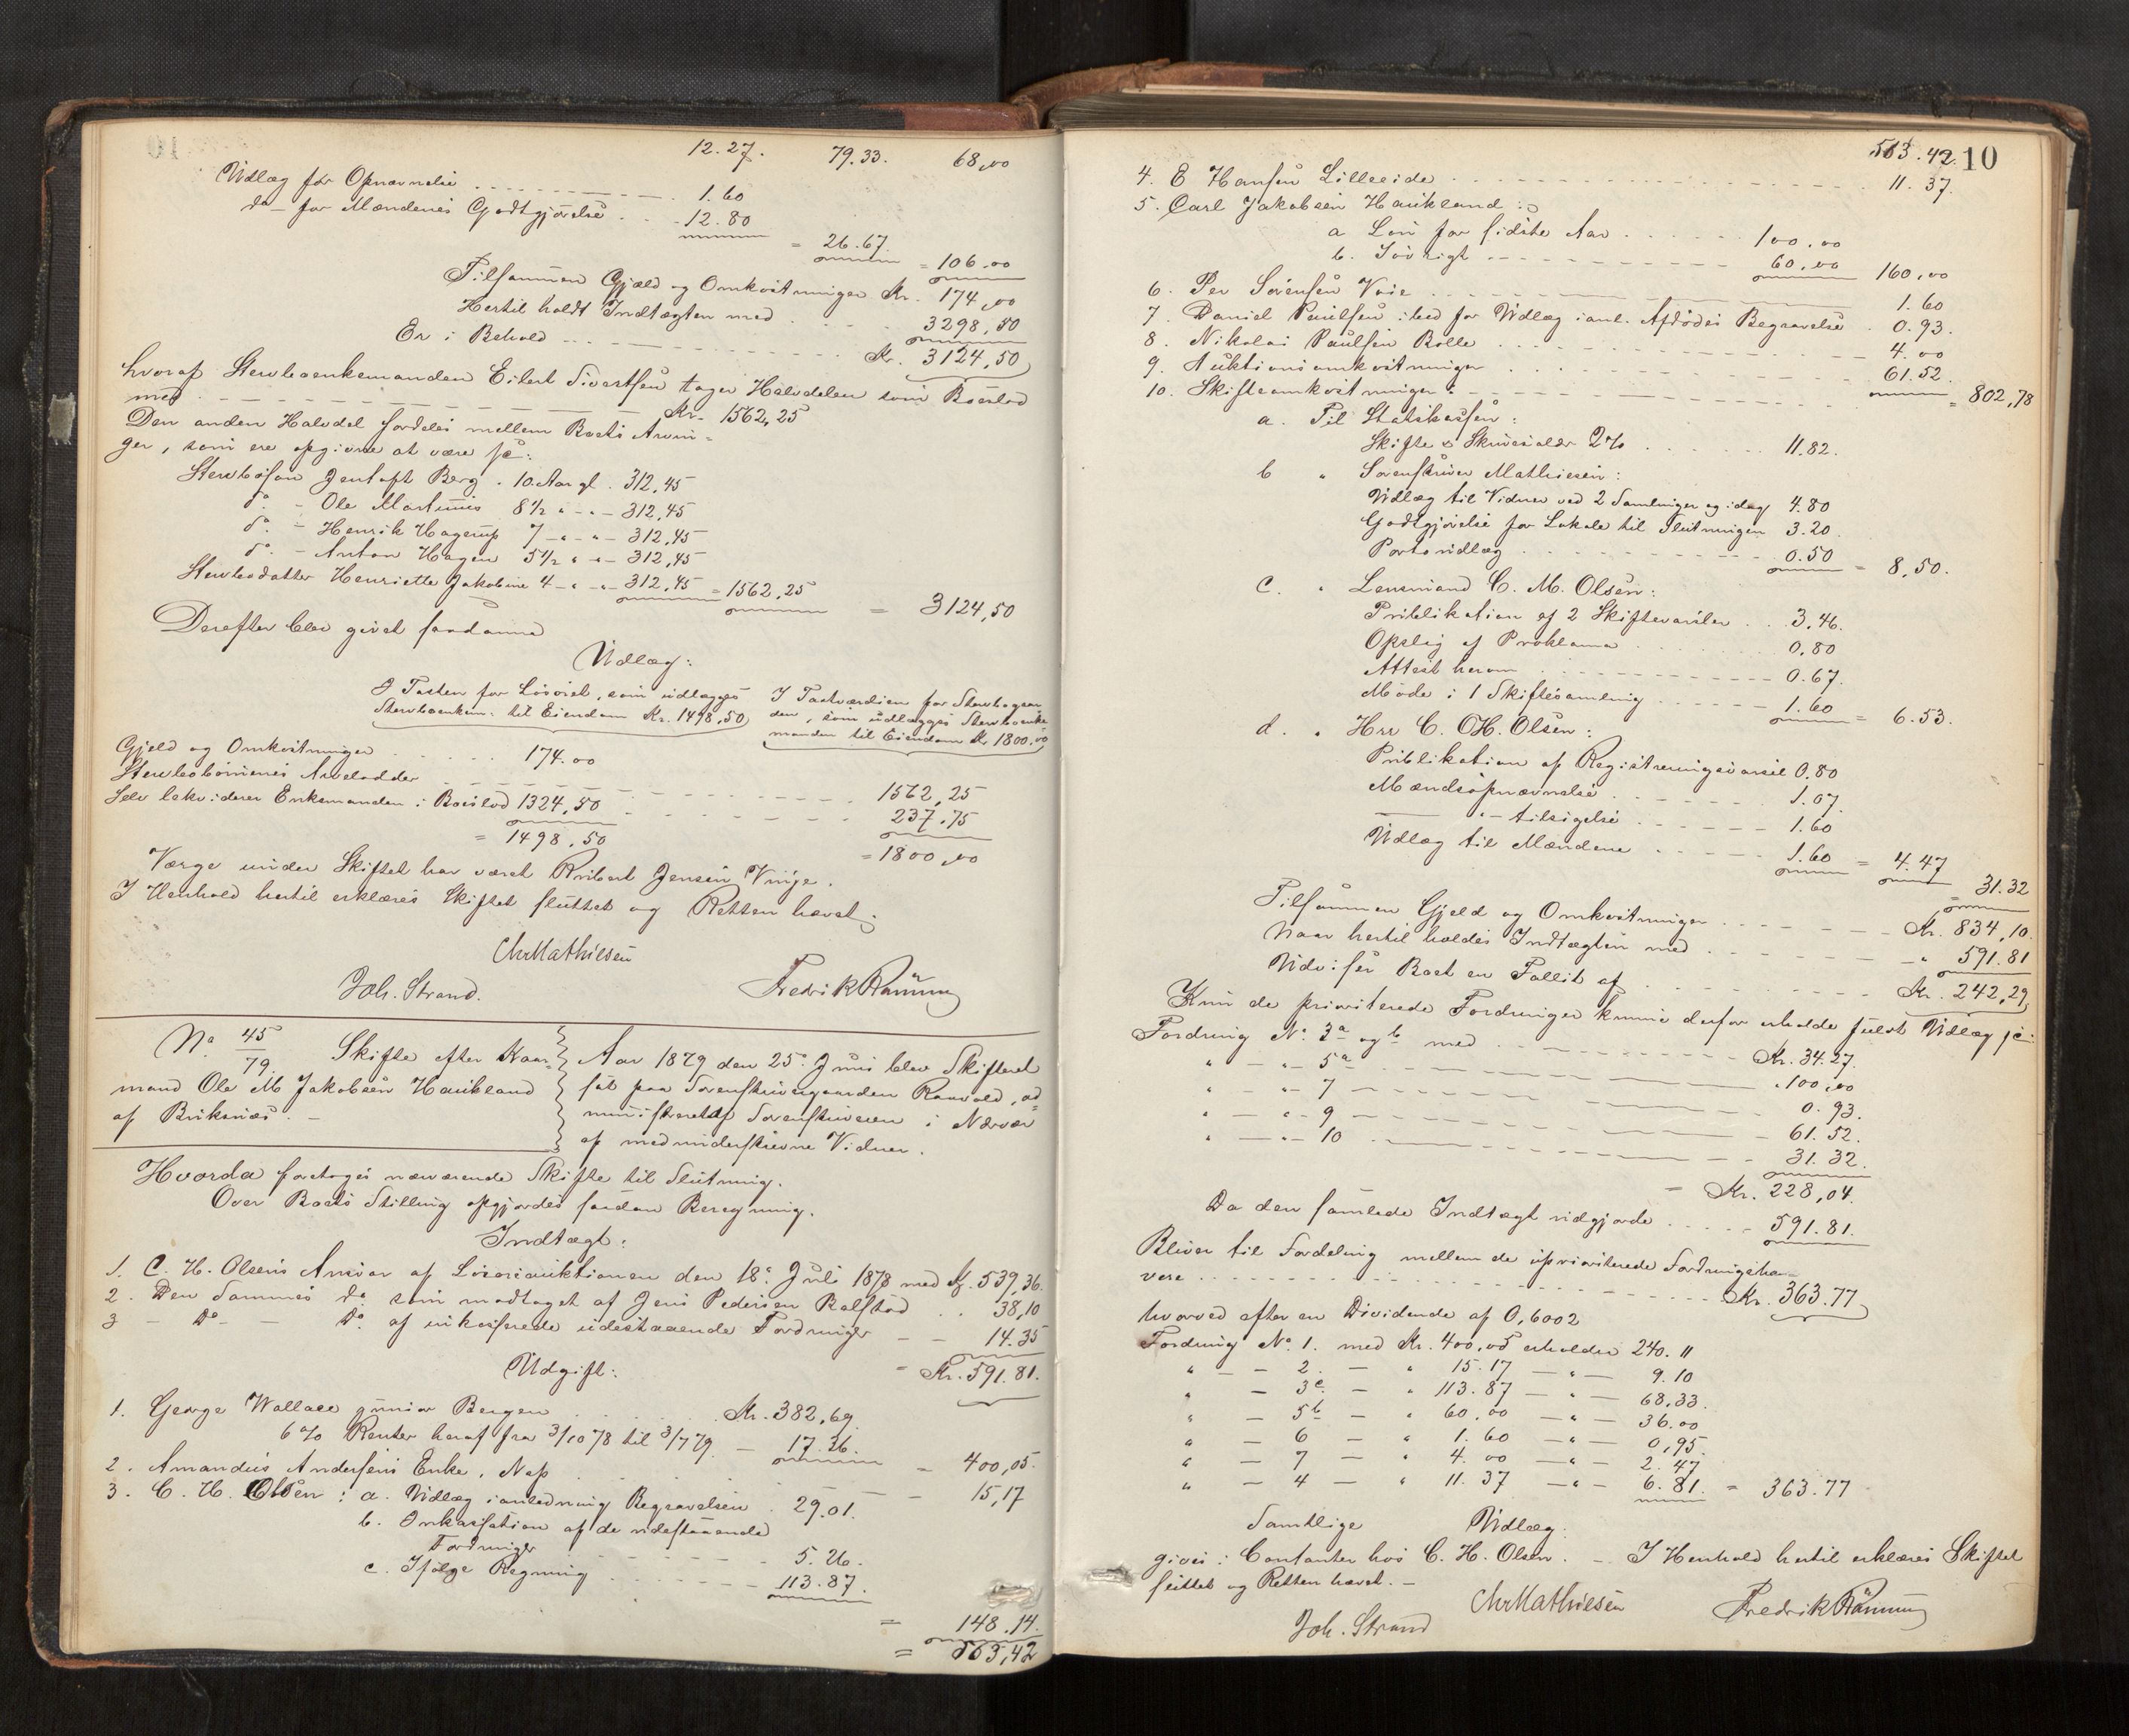 12.27. 79.33. 68,00
Udlæg for Opnævnelse 1.60
do – for Mændenes Godtgjörelse 12.80
= 26.67.
= 106.00
Tilsammen Gjæld og Omkostninger Kr. 174,00
Hertil holdt Indtægten med 3298,50
Er i Behold Kr. 3124,50
hvoraf Stervboenkemanden Eilert Sivertsen tager Halvdelen som Boeslod
med Kr. 1562,25
Den anden Halvdel fordeles mellem Boets Arvin=
ger, som ere opgivne at være sc:
Stervbosön Jentoft Berg . 10 Aar gl. 312,45
do. – Ole Martinus 8 1/2 " – " – 312,45
do. – Henrik Hagerup 7 – " – " – 312,45
do. – Anton Hagen 5 1/2 " – " – 312,45
Stervbodatter Henriette Jakobine 4 – " – " – 312,45 = 1562,25
= 3124,50
Derefter blev givet saadanne
Udlæg:
I Taxten for Lösöret, som udlægges
Stervboenkem: til Eiendom Kr. 1498,50
I Taxtværdien for Stervbogaar
den, som udlægges Stervboenke
manden til Eiendom Kr. 1800.00
Gjeld og Omkostninger 174.00
Stervbobörnenes Arvelodder 1562,25
Selv lekviderer Enkemanden i Boeslod 1324,50 237.75
= 1498.50 = 1800,00
Værge under Skiftet har været Jensen Vinje.
I Henhold hertil erklæres Skiftet sluttet og Retten hævet.
Chr Mathiesen
Joh. Strand. Fredrik Rönning
No 45/79. Skifte efter Kaar=
mand Ole M Jakobsen Haukland
af Buksnæs. –
Aar 1879 den 25de Juni blev Skifteret
sat paa Sorenskrivergaarden Ramvold, ad=
ministreret af Sorenskriveren i Nærvær
af medunderskrevne Vidner.
Hvorda foretoges nærværende Skifte til Slutning.
Over Boets Stilling opgjordes saadan Beregning.
Indtægt:
1. C. H. Olsens Ansvar af Lösöreauktionen den 18de Juli 1878 med Kr. 539,36.
2. Den Sammes do som modtaget af Jens Pedersen Ralfstad . . 38,10
3 – Do – Do. af inkasserede udestaaende Fordringer – – 14.35
= Kr. 591.81.
Udgift:
1. George Wallace junior Bergen Kr. 382,69
6 % Renter heraf fra 3/10 78 til 3/7 79 – 17.36.
= 400,05.
2. Amandus Andersens Enke, Nap – 15,17
3. C. H. Olsen: a. Udlæg i anledning Begravelsen . 29.01.
b. Inkassation af de udestaaende
Fordringer 5.26.
c. Ifölge Regning 113.87.
= 148.14.
= 563,42
563.42. 10
4. E Hansen Lilleeide 11.37.
5. Carl Jakobsen Haukland:
a Lön for sidste Aar 100.00
b. Iövrigt 60,00 160,00
6. Per Sörensen Voie 1.60
7. Daniel Paulsen ibed for Udlæg i anl. Afdödes Begravelse . 0.93.
8. Nikolai Paulsen Bolle 4.00
9. Auktionsomkostninger 61.52.
= 802,78
10. Skifteomkostninger:
a. Til Statskassen:
Skifte & Skriversalær 2% 11.82.
b " Sorenskriver Mathiesen:
Udlæg til Vidner ved 2 Samlinger og idag 4.80
Godtgjörelse for Lokale til Slutningen 3.20.
Portoudlæg 0.50 = 8,50.
c. " Lensmand C. M. Olsen:
Publikation af 2 Skiftevarsler 3,46.
Opslag af Proklama 0,80
Attest herom 0.67.
Möde i 1 Skiftesamling 1.60 = 6.53.
d. " Herr C. H. Olsen:
Publikation af Registreringsvarsel 0,80
Mændsopnævnelse 1.07.
– " – tilsigelse 1.60
Udlæg til Mændene 1.60 = 4.47
= 31.32
Tilsammen Gjeld og Omkostninger Kr. 834,10.
Naar hertil holdes Indtægten med " 591.81
Udviser Boet en Fallit af Kr. 242,29
Kun de prioriterede Fordringer kunne derfor erholde fuldt Udlæg sc:
Fordring No. 3a og b med Kr. 34.27.
" – " – 5a " 100,00
" – " – 7 0.93.
" – " – 9 61.52.
" – " – 10 31.32.
= Kr. 228,04.
Da den samlede Indtægt udgjorde 591.81.
Bliver til Fordeling mellem de uprioriterede Fordringsha-
vere Kr. 363.77
hvorved efter en Dividende af 0,6002
Fordring No. 1. med Kr. 400,05 erholder 240.11
" – 2. – " 15.17 – " – 9.10
" – 3c. – " 113.87 – " – 68,33.
" – 5b – " 60,00 – " – 36.00
" – 6 – " 1.60 – " – 0,95.
" – 7 – " 4.00 – " – 2.47
" – 4 – " 11.37 – " – 6.81. = 363.77
Samtlige Udlæg
gives i Contanter hos C. H. Olsen. – I Henhold hertil erklæres Skiftet
sluttet og Retten hævet. –
Chr Mathiesen Fredrik Rönning
Joh. Strand